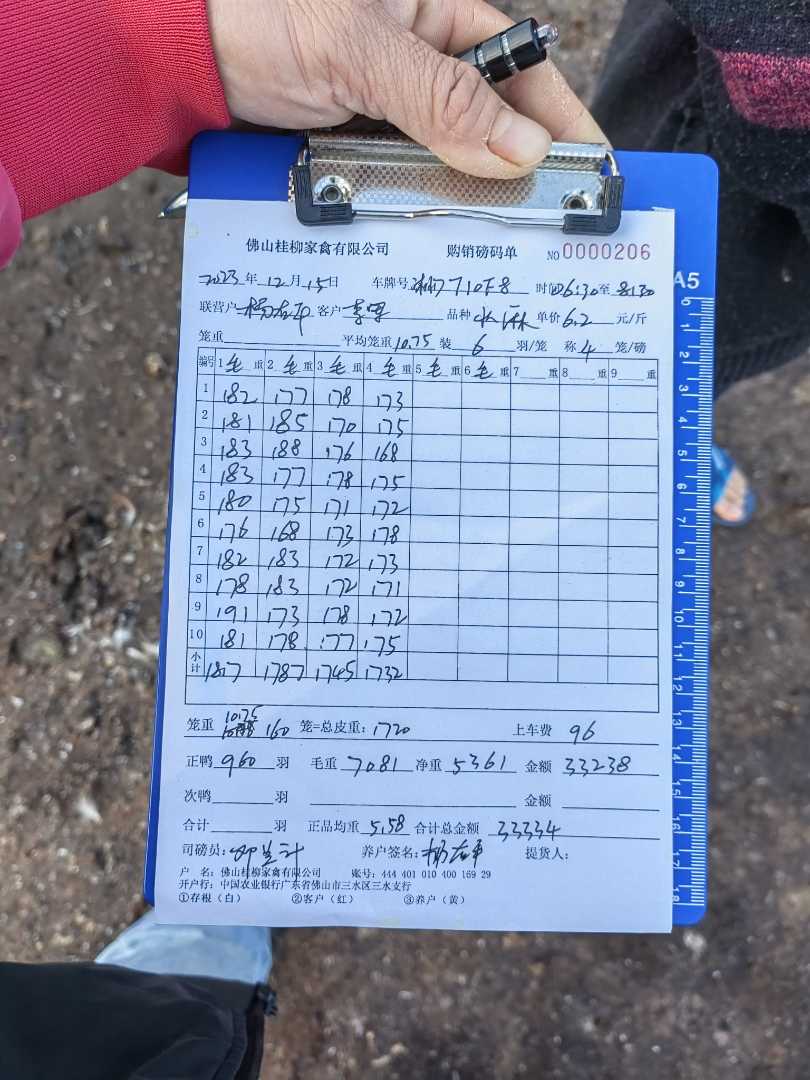 佛山桂柳家禽有限公司 购销磅码单 NO 0000206
2023年12月15日 车牌号 时间 6:30至8:30
联营户 客户 品种 单价6.2元/斤
笼重 平均笼重10.75 装6羽/笼 称4笼/磅
编号 1毛重 2毛重 3毛重 4毛重 5毛重 6毛重 7重 8重 9重
1 182 177 178 173
2 181 185 170 175
3 183 188 176 168
4 183 177 178 175
5 180 175 171 172
6 176 168 173 178
7 182 183 172 173
8 178 183 172 171
9 191 173 178 172
10 181 178 177 175
小计 1817 1787 1745 1732
笼重 10.75 160 笼=总皮重:1720 上车费 96
正鸭960羽 毛重7081 净重5361 金额33238
次鸭 羽 金额
合计 羽 正品均重5.58 合计总金额33334
司磅员: 养户签名: 提货人:
户 名:佛山桂柳家禽有限公司 账号:444 401 010 400 169 29
开户行:中国农业银行广东省佛山市三水区三水支行
①存根(白) ②客户(红) ③养户(黄)
A5
0 1 2 3 4 5 6 7 8 9 10 11 12 13 14 15 16 17 18